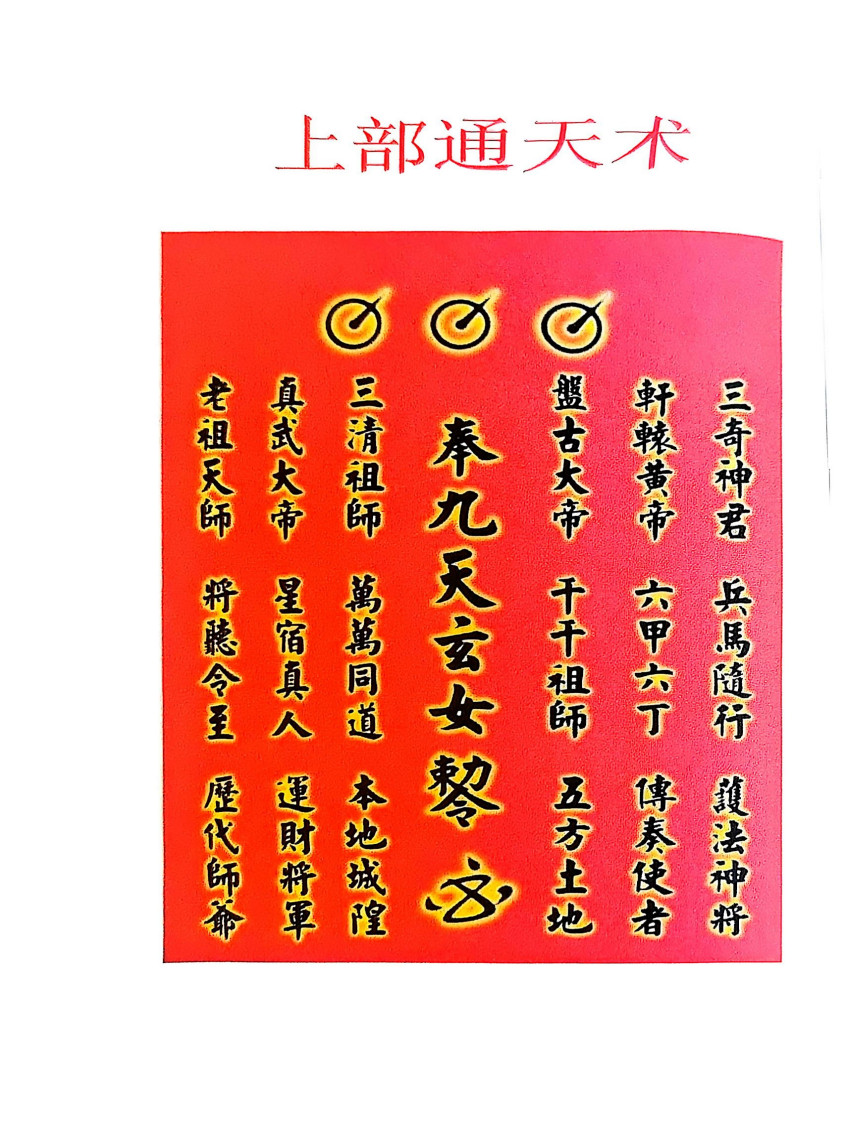 上部通天术
三奇神君 兵馬隨行 護法神將
軒轅黃帝 六甲六丁 傳奏使者
盤古大帝 千千祖師 五方土地
奉九天玄女勅令
三清祖師 萬萬同道 本地城隍
真武大帝 星宿真人 運財將軍
老祖天師 將聽令至 歷代師爺